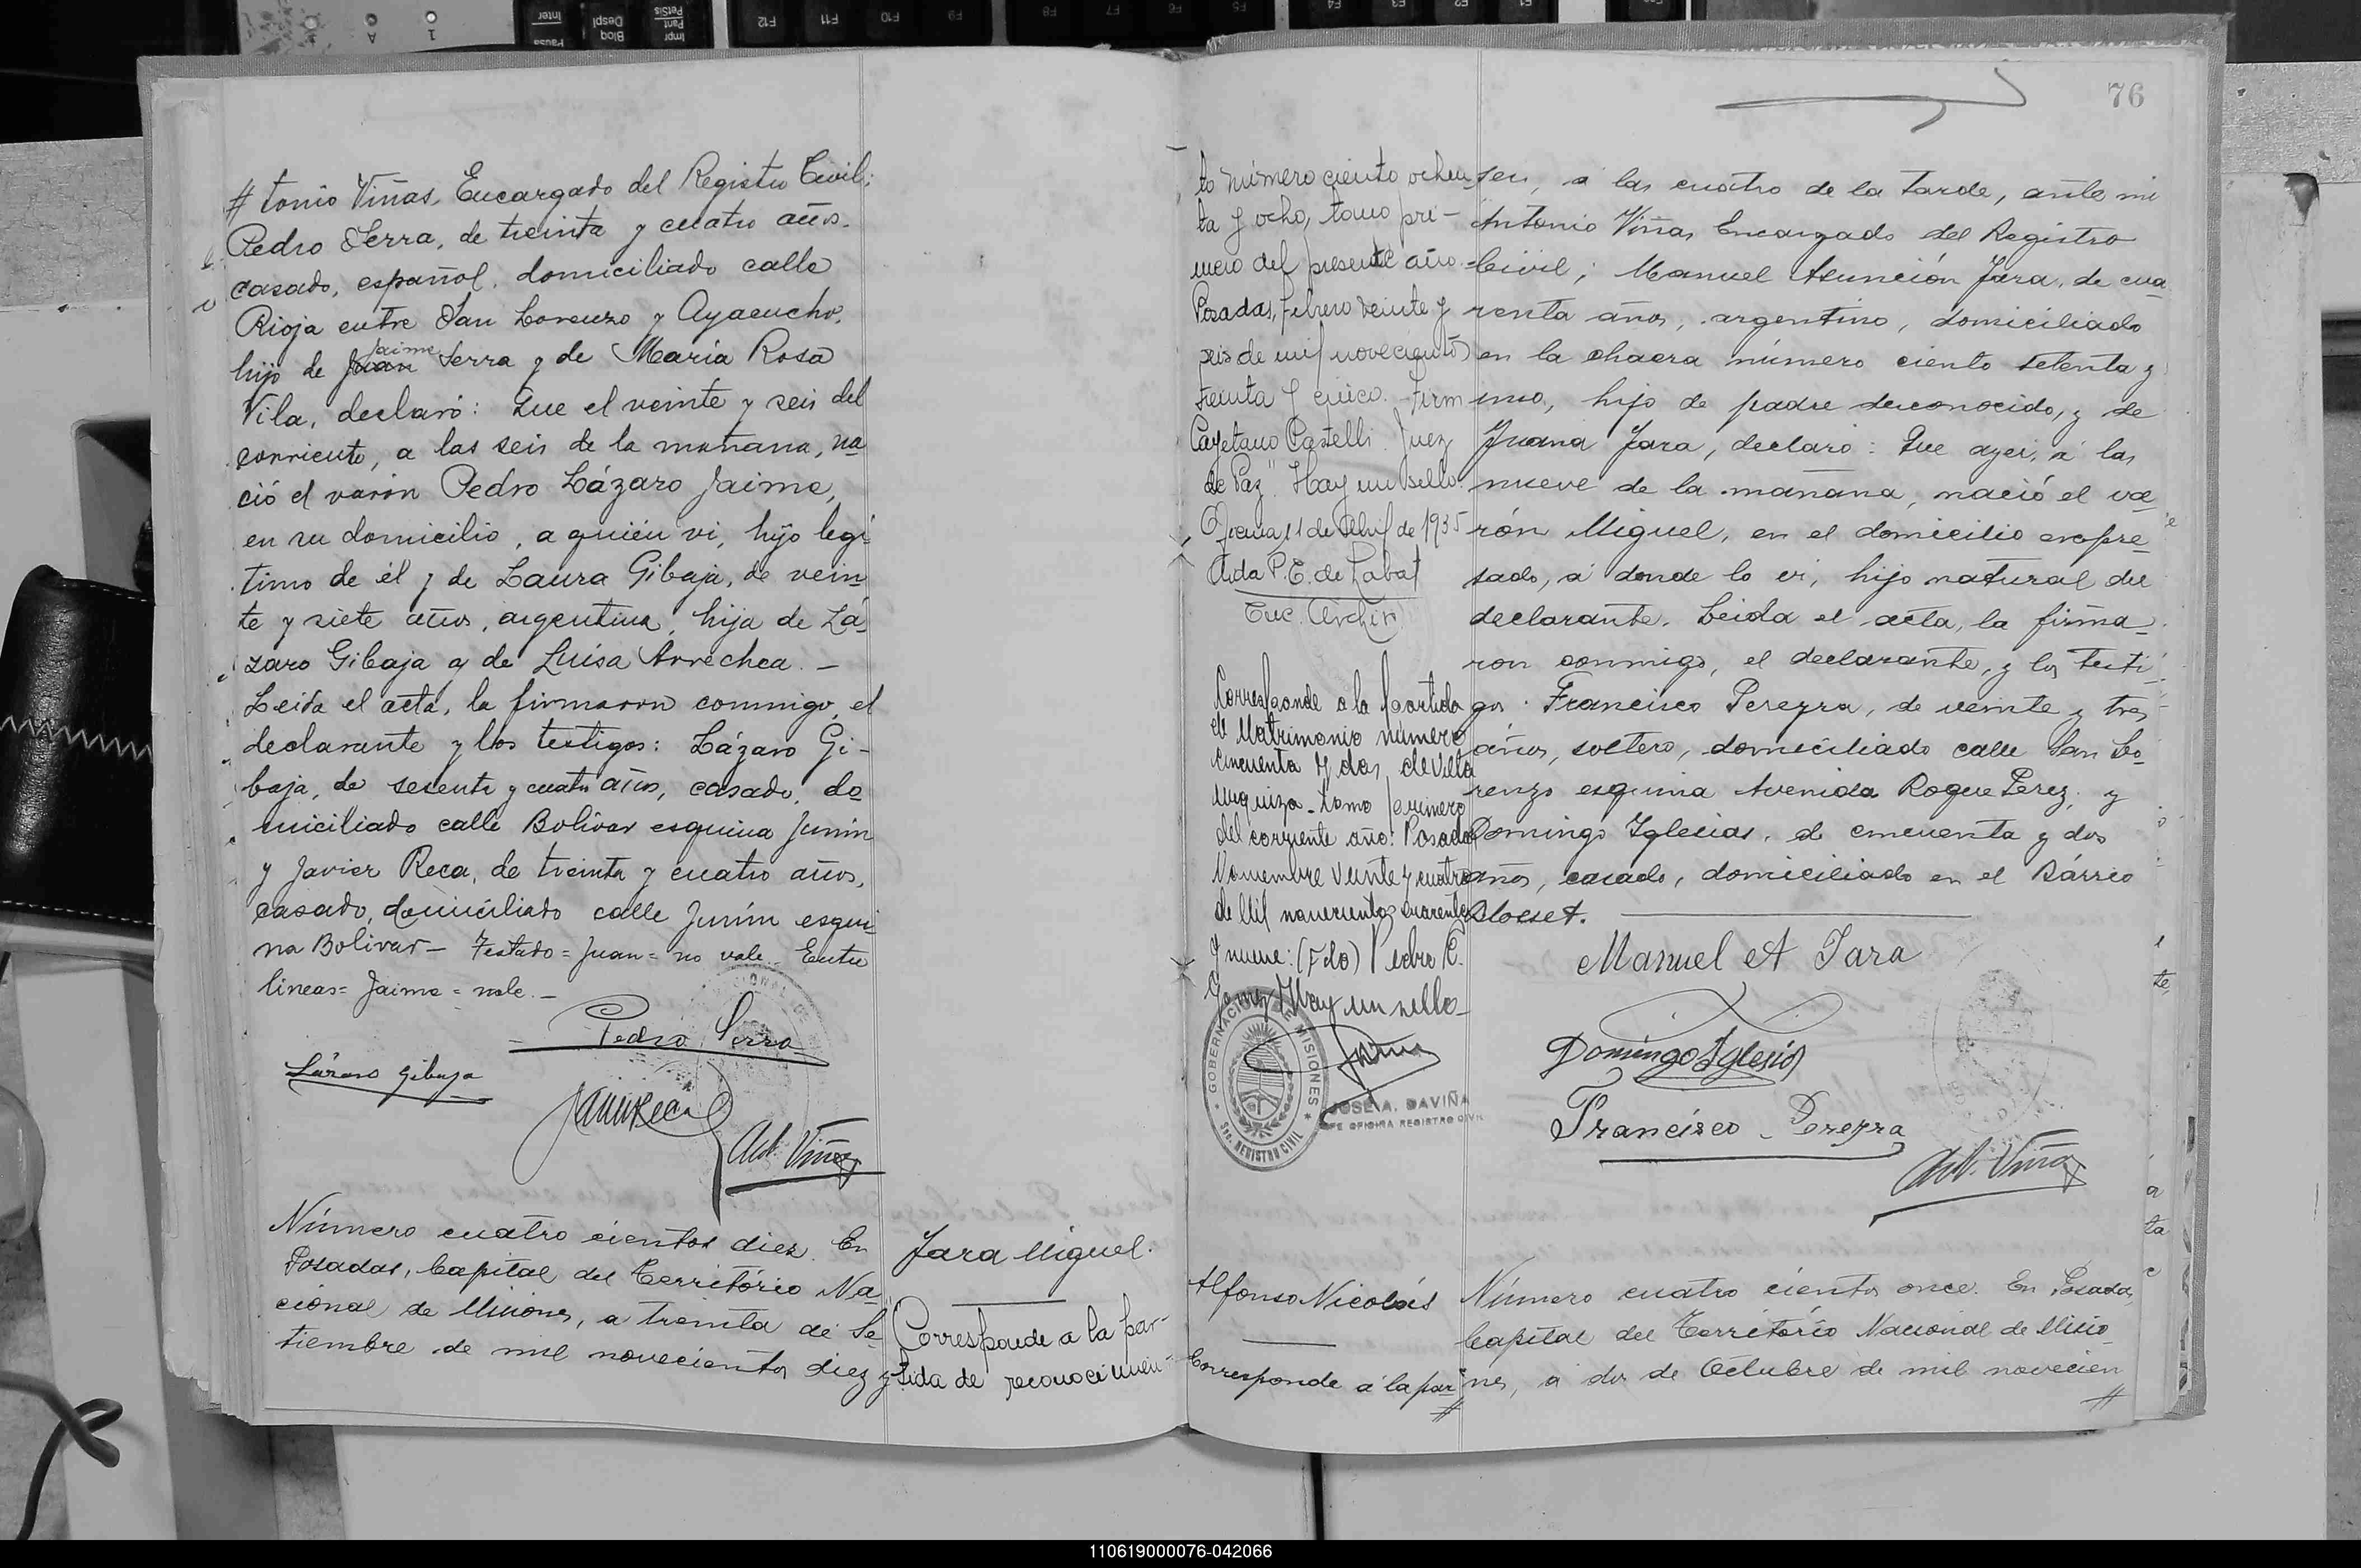 # tonio Viñas, Encargado del Registro Civil;
Pedro Serra, de treinta y cuatro años,
casado, español, domiciliado calle
Rioja entre San Lorenzo y Ayacucho,
Jaime
hijo de Juan Serra y de María Rosa
Vila, declaró: Que el veinte y seis del
corriente, a las seis de la mañana, na
ció el varón Pedro Lázaro Jaime,
en su domicilio, a quién vi, hijo legí
timo de él y de Laura Gibaja, de vein
te y siete años, argentina, hija de Lá
zaro Gibaja y de Luisa Arrechea. —
Leida el acta, la firmaron conmigo, el
declarante y los testigos: Lázaro Gi-
baja, de sesenta y cuatro años, casado, do
miciliado calle Bolivar esquina Junin
y Javier Reca, de treinta y cuatro años,
casado, domiciliado calle Junin esqui
na Bolivar — Testado = Juan = no vale. Entre
lineas = Jaime = vale. —
Pedro Serra
Lázaro Gibaja
Ant. Viñas
Número cuatro cientos diez. En
Posadas, Capital del Território Na
cional de Misiones, a treinta de Se
tiembre de mil novecientos diez y
Jara Miguel.
Corresponde a la par-
tida de reconocimien-
76
to número ciento ochen
ta y ocho, tomo pri-
mero del presente año.
Posadas, febrero veinte y
seis de mil novecientos
treinta y cinco. Firm
Cayetano Castelli. Juez
de Paz". Hay un sello.
11 de Abril de 1935
Aida P. E. de Labat
Enc. Archivo
Corresponde a la partida
de Matrimonio número
cincuenta y dos, de Villa
Urquiza - tomo primero
del corriente año: Posadas
Noviembre veinte y cuatro
de Mil novecientos cuarenta
y nueve: (Fdo) Pedro C.
Gomez Hay un sello -
GOBERNACION DE MISIONES
SEC. REGISTRO CIVIL
JOSE A. DAVIÑA
JEFE OFICINA REGISTRO CIVIL
seis, a las cuatro de la tarde, ante mi
Antonio Viñas Encargado del Registro
Civil; Manuel Asunción Jara, de cua
renta años, argentino, domiciliado
en la chacra número ciento setenta y
uno, hijo de padre desconocido, y de
Juana Jara, declaró: Que ayer, á las
nueve de la mañana, nació el va
rón Miguel, en el domicilio expre-
sado, á donde lo vi, hijo natural del
declarante. Leida el acta, la firma-
ron conmigo, el declarante, y los testi-
gos: Francisco Pereyra, de veinte y tres
años, soltero, domiciliado calle San Lo-
renzo esquina Avenida Roque Perez, y
Domingo Iglesias, de cincuenta y dos
años, casado, domiciliado en el Bárrio
Closset.
Manuel A Jara
Domingo Iglesias
Francisco Pereyra
Ant. Viñas
Alfonso Nicolás
Corresponde á la par
#
Número cuatro cientos once. En Posadas,
Capital del Território Nacional de Misio
nes, a dos de Octubre de mil novecien
#
110619000076-042066